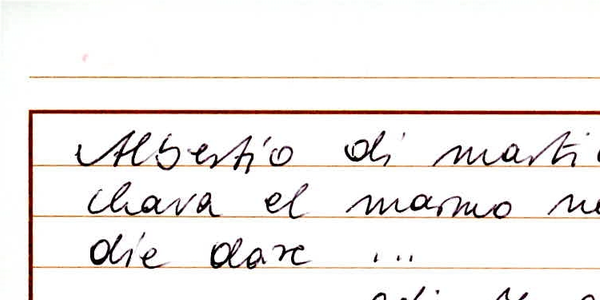 Albertjo di marti
chava el marmo ne
die dare ...